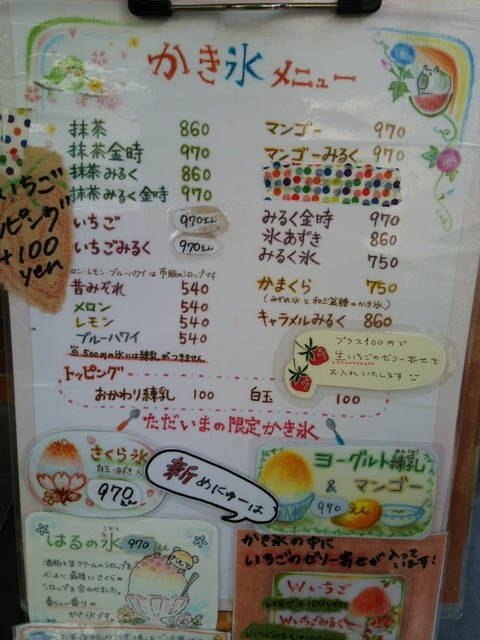 かき氷 メニュー
抹茶 860
抹茶金時 970
抹茶みるく 860
抹茶みるく金時 970
いちご 970えん
いちごみるく 970えん
メロン・レモン・ブルーハワイは市販のシロップです
昔みぞれ 540
メロン 540
レモン 540
ブルーハワイ 540
※500円の氷には練乳がつきません
マンゴー 970
マンゴーみるく 970
みるく金時 970
氷あずき 860
みるく氷 750
かまくら 750
(みぞれ氷と和三盆糖のかき氷)
キャラメルみるく 860
いちご
ピング
+100
yen
プラス100円で
生いちごのゼリー寄せを
お入れいたします
トッピング
おかわり練乳 100 白玉 100
ただいまの限定かき氷
さくら氷
白玉・あずき入
970えん
新めにゅーは
ヨーグルト練乳
& マンゴー
970えん
はるの氷 970えん
酒粕と生クリームのシロップを
ベースに最後にさくらの
シロップを合わせました。
春らしい香りの
かき氷です。
かき氷の中に
いちごのゼリー寄せが入って
います!
Wいちご
Wいちごみるく